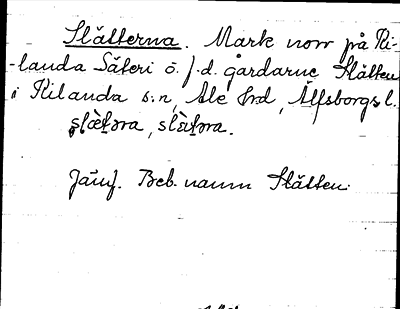 Slätterna. Mark norr på Ki-
-landa Säteri ö. f. d. gårdarne Slätten
i Kilanda s:n, Ale hrd, Älfsborgs l.
Jämf. Beb. namn Slätten.